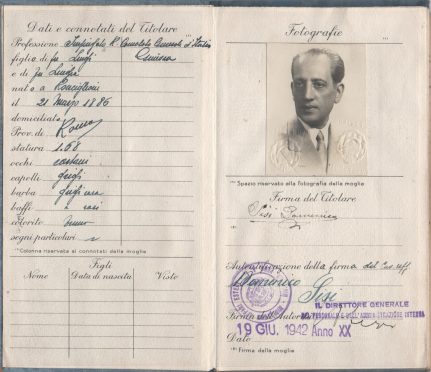 Dati e connotati del Titolare
Professione R. Consolato Generale d'Italia
figlio di fu Luigi Ginevra
e di fu Luigia
nato a Ronciglione
il 21 Marzo 1886
domiciliato
Prov. di Roma
statura 1.68
occhi castani
capelli grigi
barba
baffi rasi
colorito
segni particolari
Colonna riservata ai connotati della moglie
Figli
Nome Data di nascita Visto
Fotografie
Spazio riservato alla fotografia della moglie
Firma del Titolare
Sisi Domenico
Autentificazione della firma del
Domenico Sisi
IL DIRETTORE GENERALE
DEL PERSONALE E DELL'AMMINISTRAZIONE INTERNA
Firma dell'Autorità
19 GIU. 1942 Anno XX
Dato
Firma della moglie